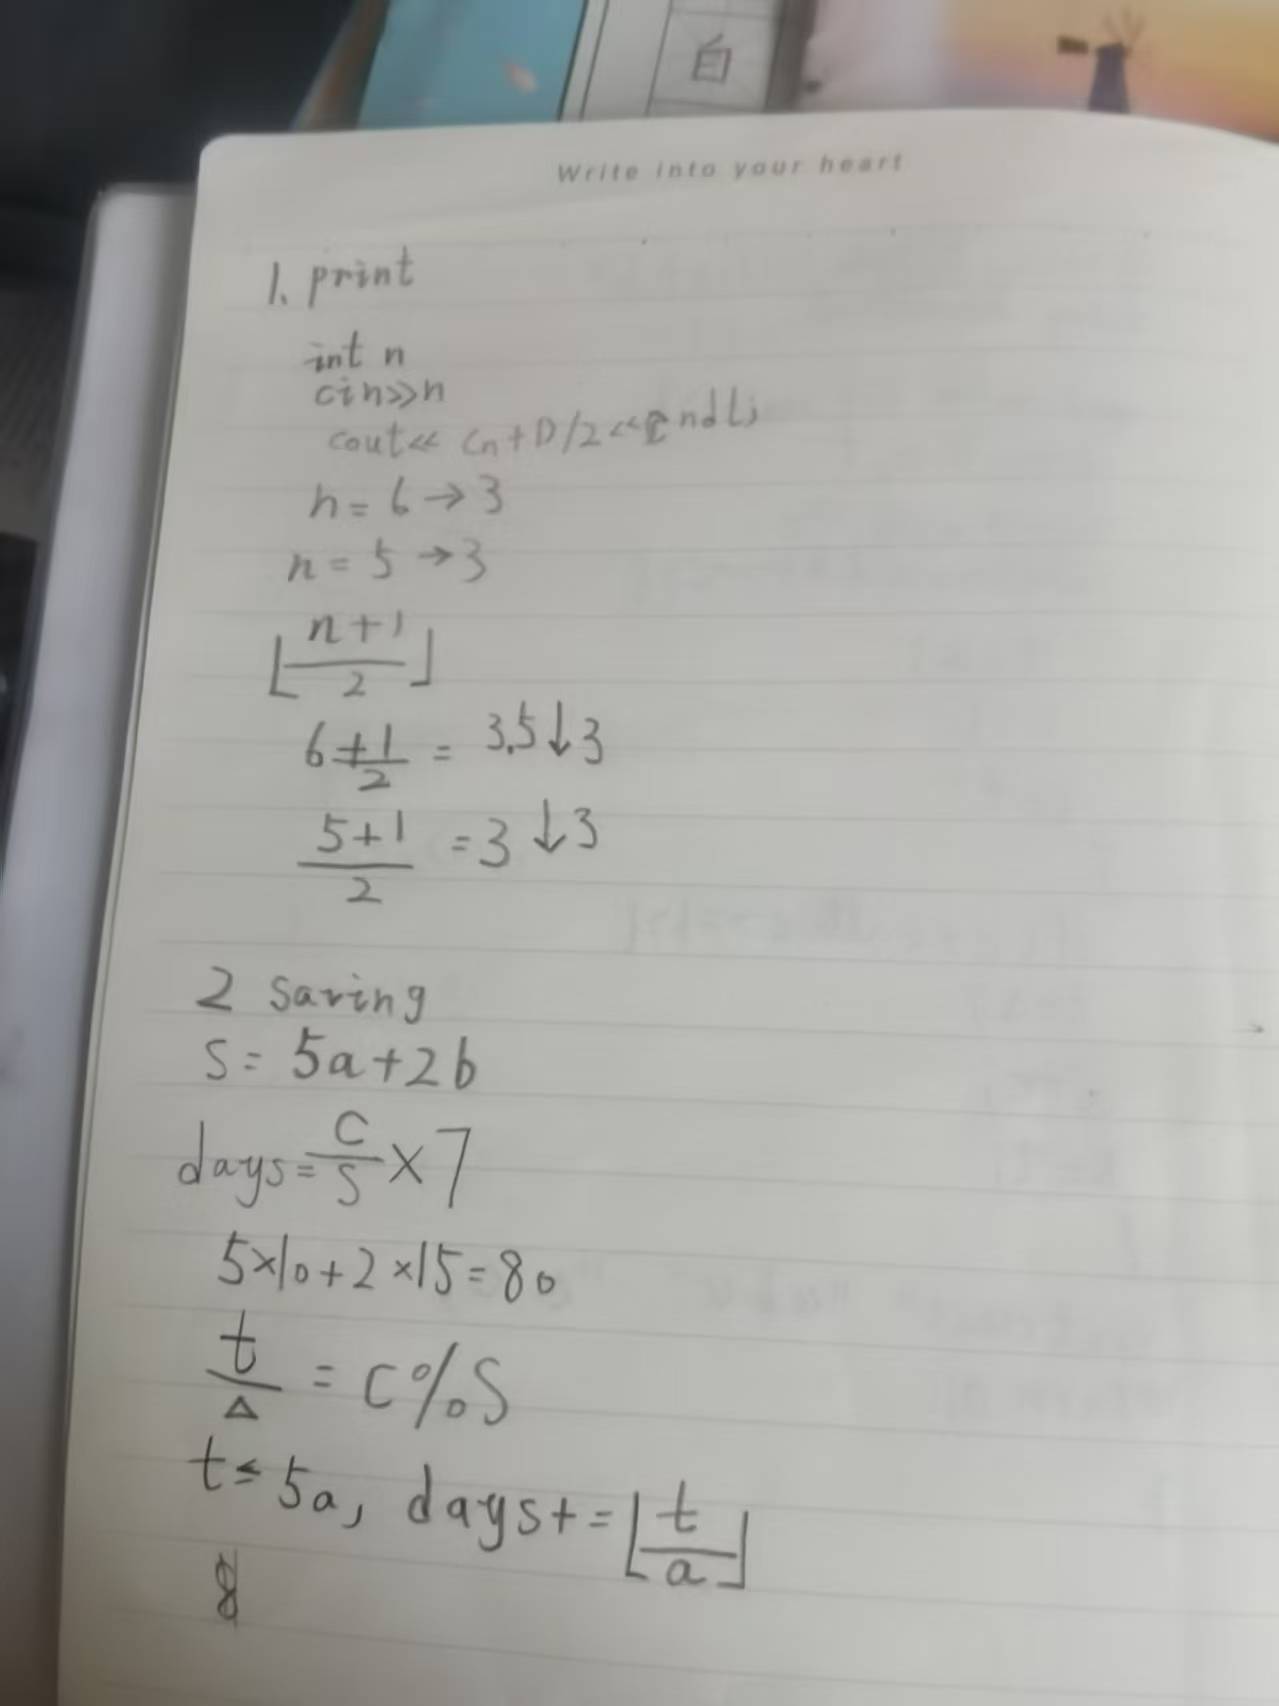 自
Write into your heart
1. print
int n
cin>>n
cout<< (n+1)/2<<endl;
n=6→3
n=5→3
⌊(n+1)/2⌋
6+1/2 = 3.5↓3
5+1/2 =3↓3
2 saving
S= 5a+2b
days=C/S×7
5×10+2×15=80
t/△ = C%S
t≤5a, days+=⌊t/a⌋